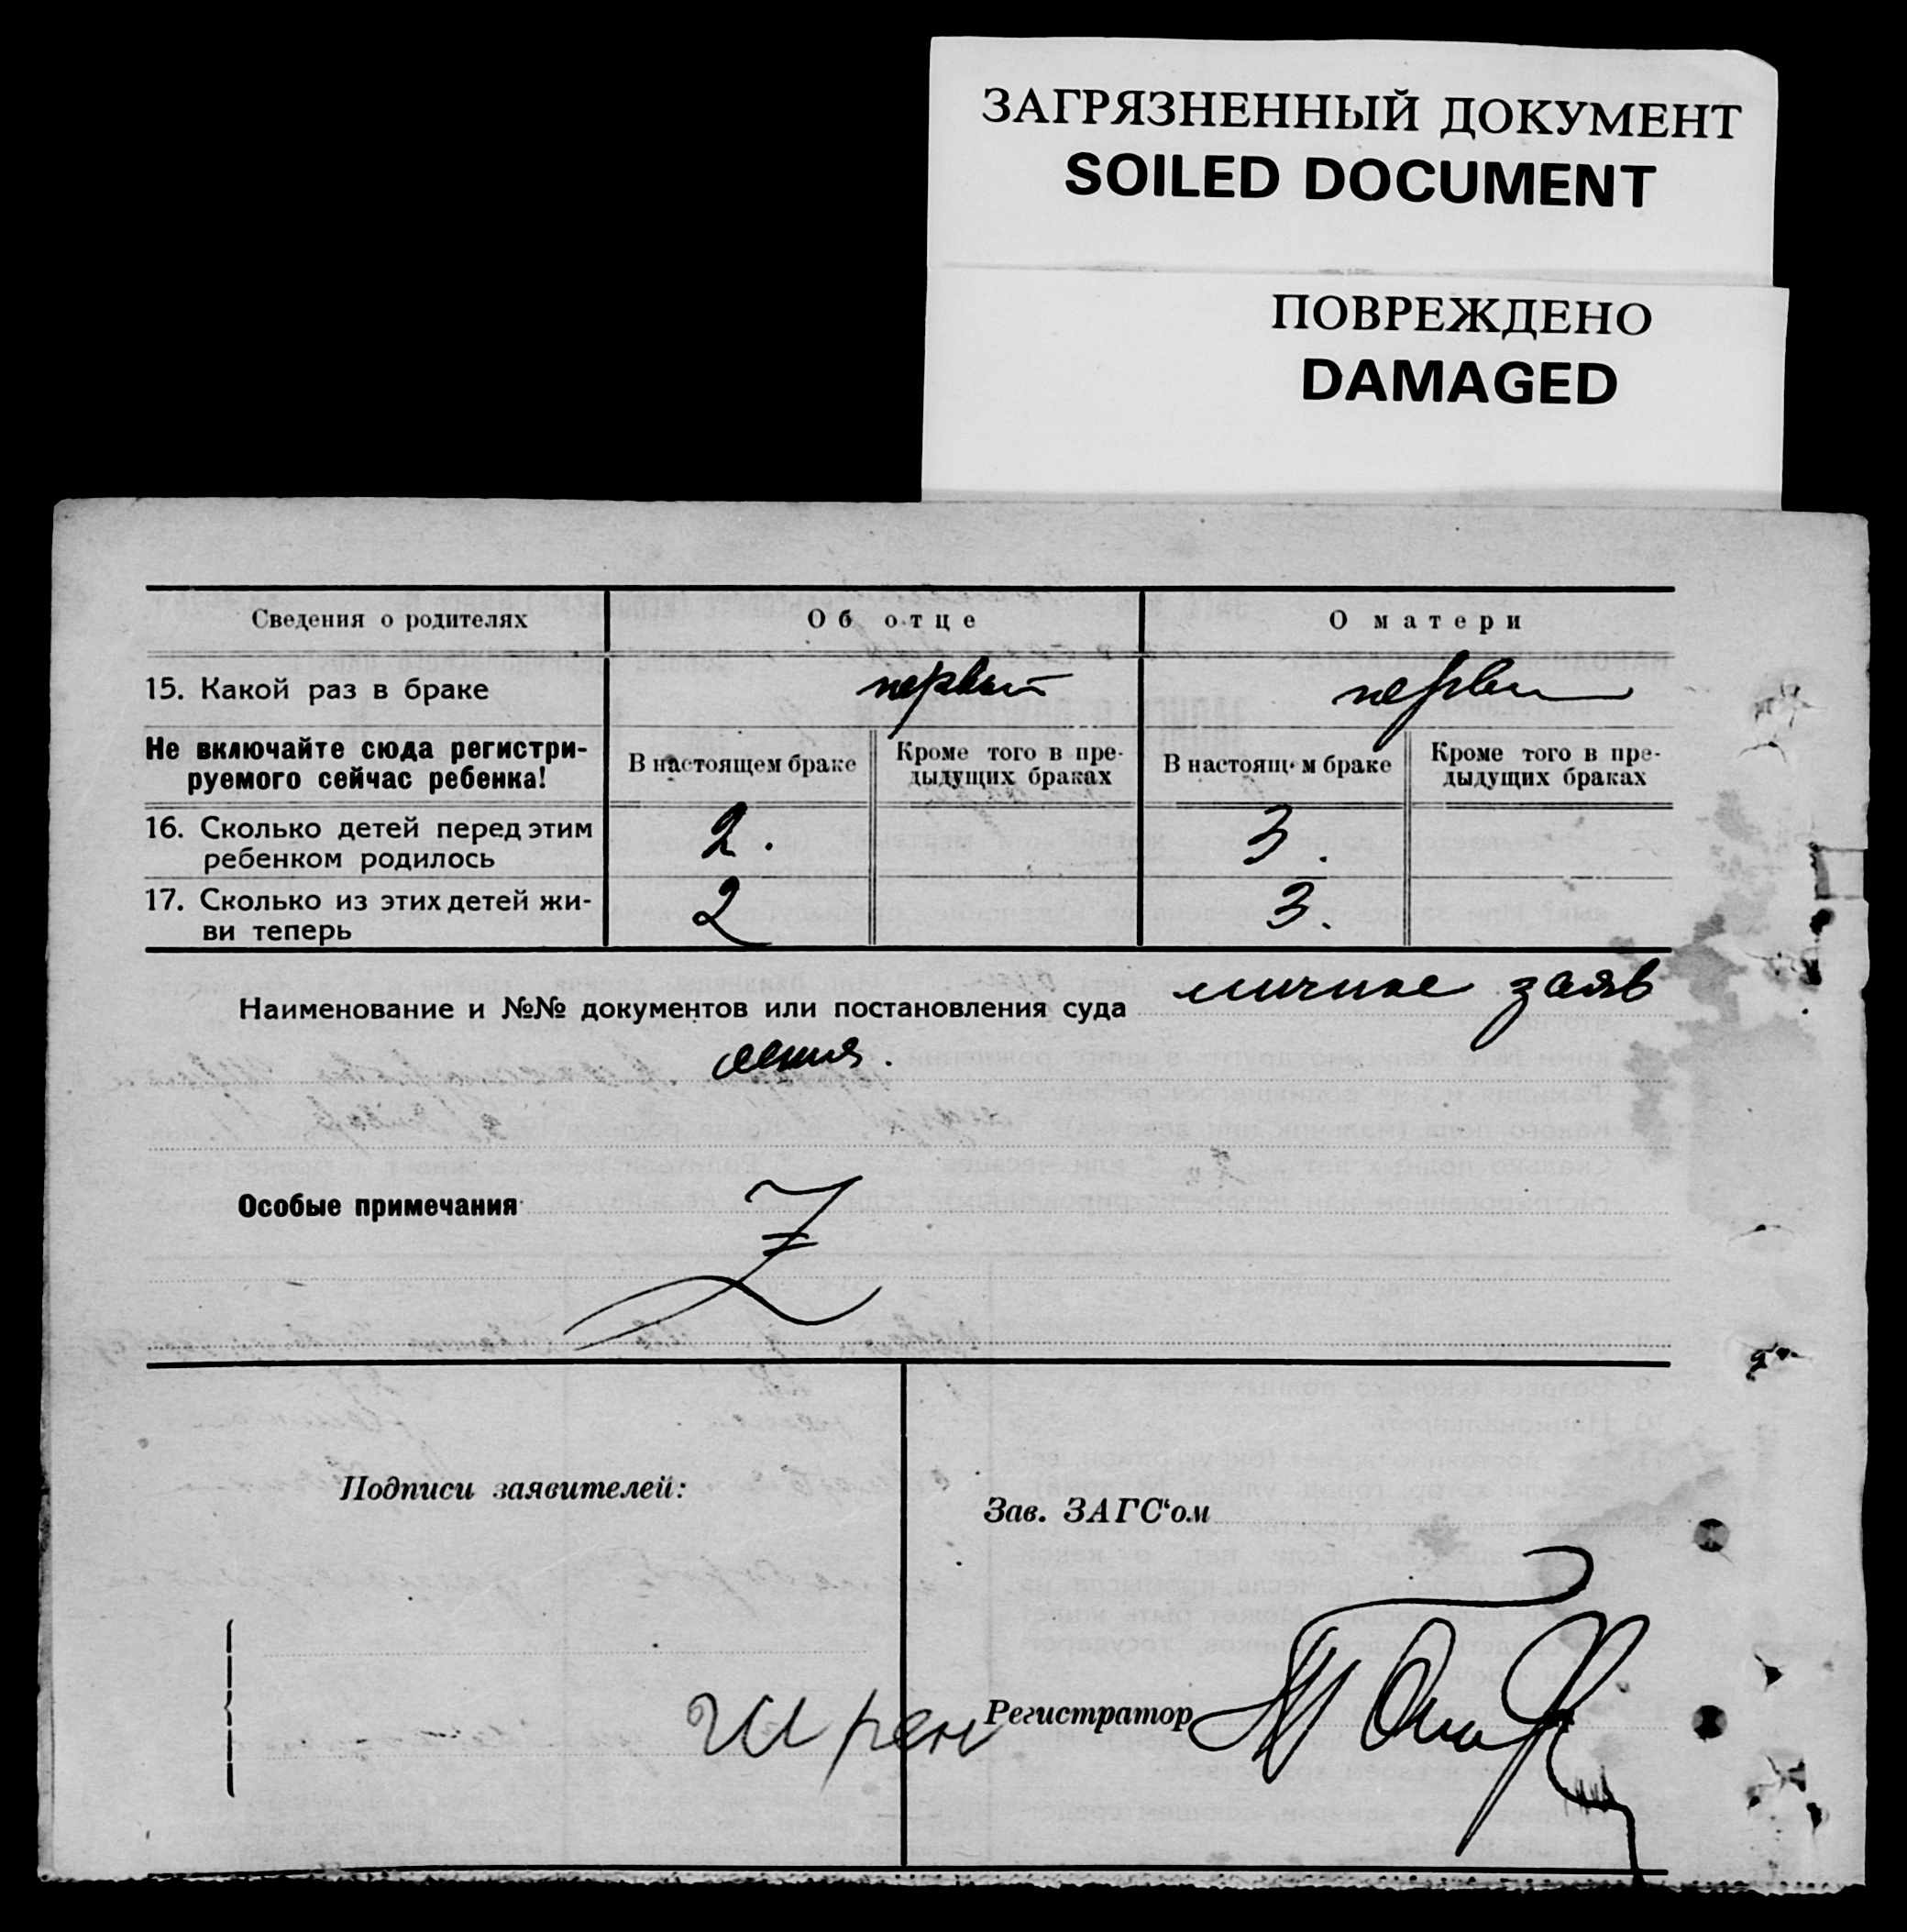 ЗАГРЯЗНЕННЫЙ ДОКУМЕНТ
SOILED DOCUMENT
ПОВРЕЖДЕНО
DAMAGED
Сведения о родителях Об отце О матери
15. Какой раз в браке первый первый
Не включайте сюда регистри-
руемого сейчас ребенка!
В настоящем браке
Кроме того в пре-
дыдущих браках
В настоящем браке
Кроме того в пре-
дыдущих браках
16. Сколько детей перед этим
ребенком родилось
2. 3.
17. Сколько из этих детей жи-
ви теперь
2 3.
Наименование и №№ документов или постановления суда личное заяв
ления.
Особые примечания Z
Подписи заявителей:
Зав. ЗАГС'ом
Регистратор